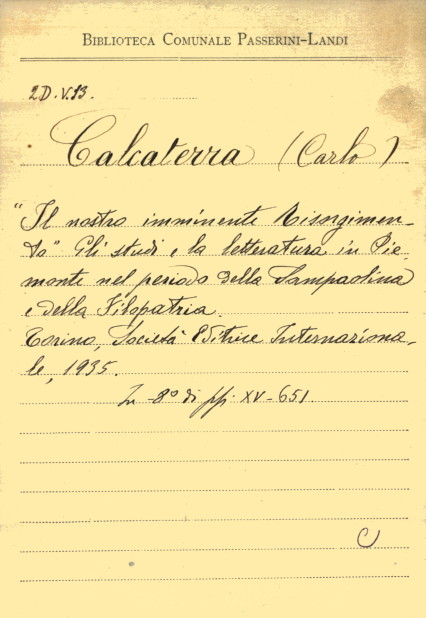 BIBLIOTECA COMUNALE PASSERINI-LANDI
2D.V.13.
Calcaterra (Carlo)
"Il nostro imminente Risorgimen-
to" Gli studi e la letteratura in Pie-
monte nel periodo della Sampaolina
e della Filopatria.
Torino, Società Editrice Internaziona-
le, 1935.
In -8° di pp. XV-651.
C